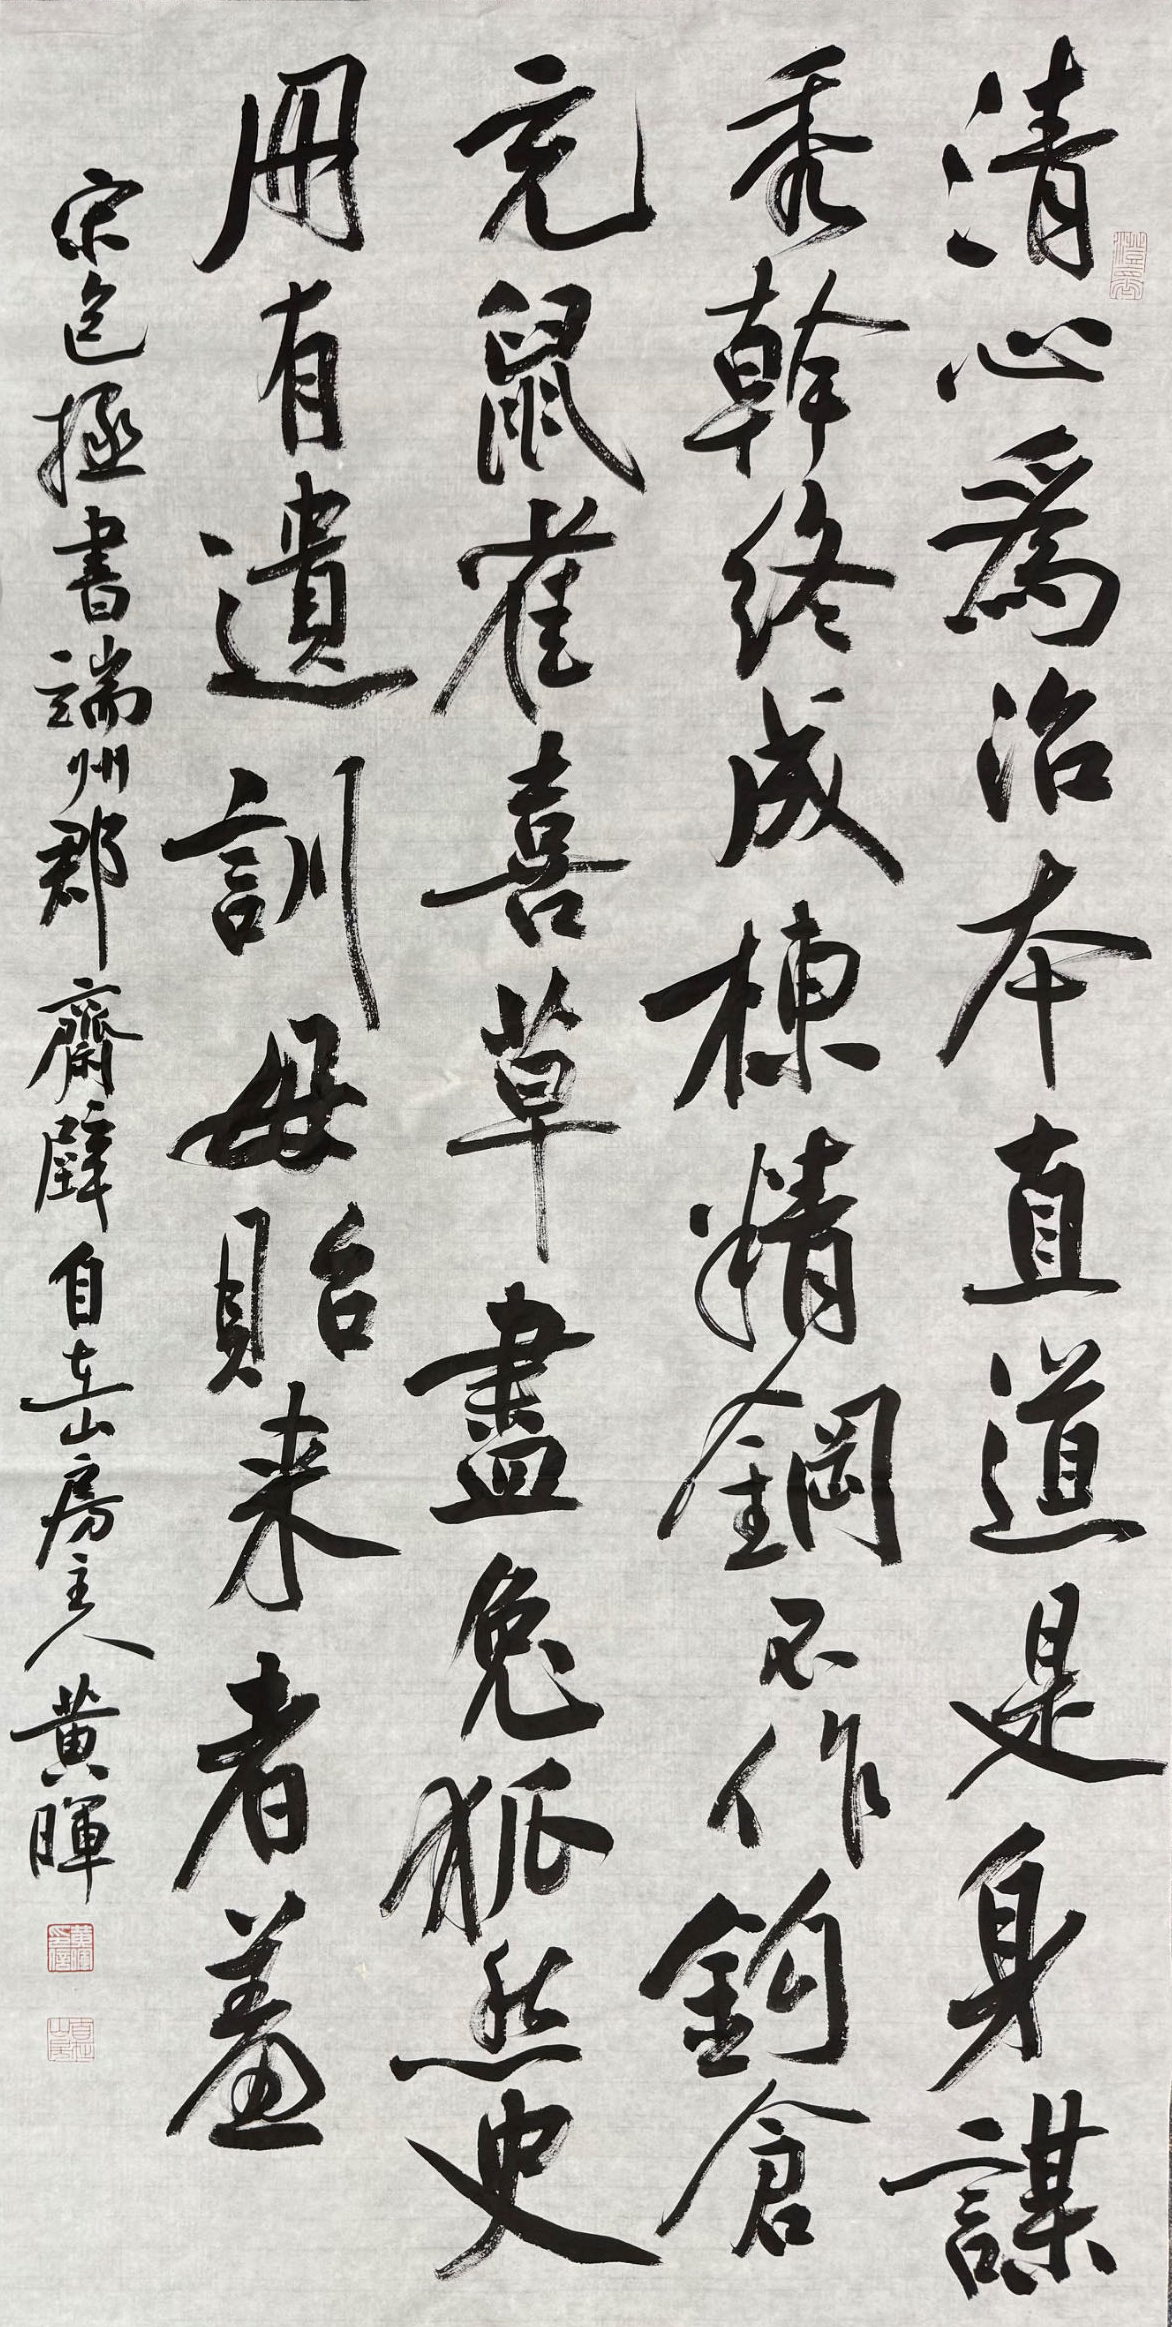 清心爲治本直道是身謀
秀幹終成棟精鋼不作鉤倉
充鼠雀喜草盡兔狐愁史
冊有遺訓毋貽来者羞
宋包拯書端州郡齋壁自在山房主人黄暉
自在山房